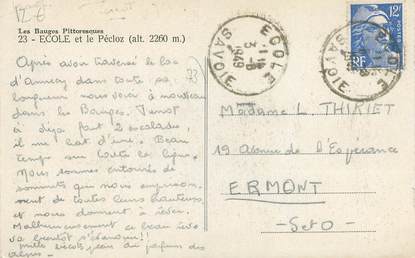 12 €
Les Bauges Pittoresques
23 - ECOLE et le Pécloz (alt. 2260 m.)
Après avoir traversé le lac
d'Annecy dans toute sa
longueur nous voici à nouveau
dans les Bauges.
a déjà fait 2 escalades,
il me bat d'une. Beau
temps sur toute la ligne.
Nous sommes entourés de
sommets qui nous
de toutes leurs hauteurs
et nous donnent à rêver.
Malheureusement ce beau rêve
va bientôt s'évanouir!
mille du parfum des
alpes -
73
ECOLE
SAVOIE
12F
RF
ECOLE
SAVOIE
Madame L. THIRIET
19 Avenue de l'Espérance
ERMONT
- S et O -